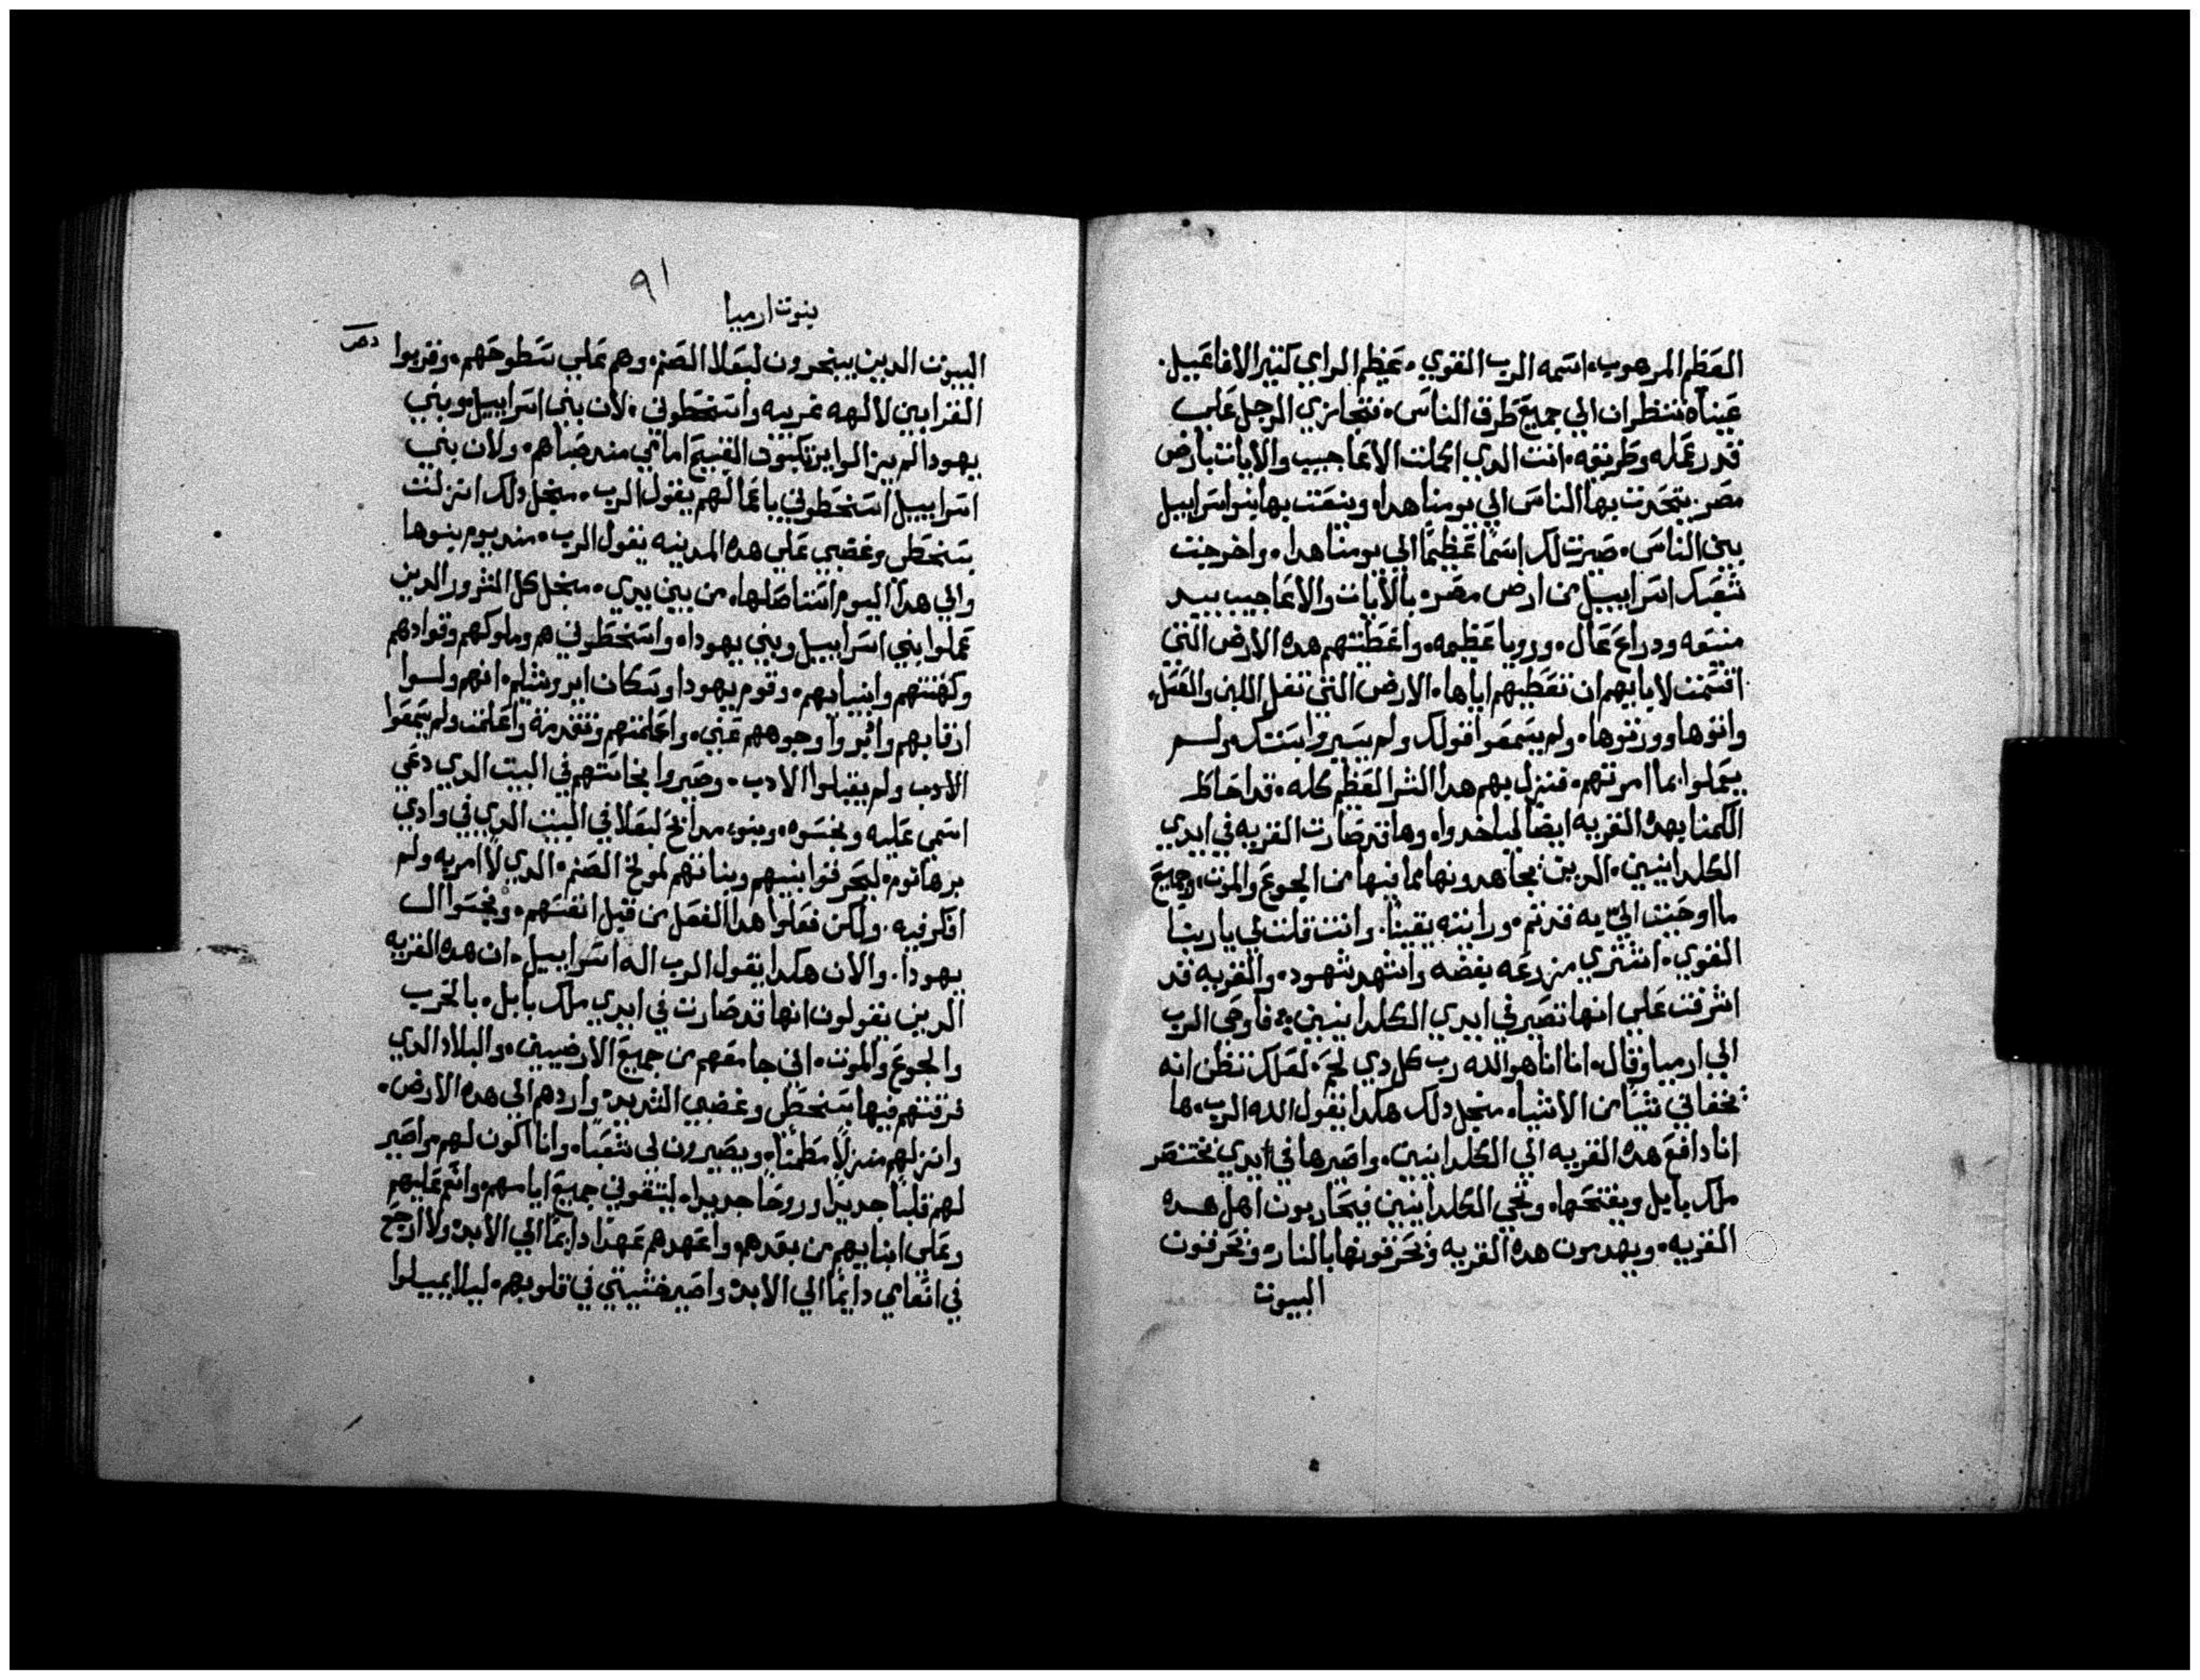 العظم المرهوب، اسمه الرب القوي، عظيم الراي كثير الافاعيل.
عيناه تنظران الي جميع طرق الناس، تتجازي الرجل علي
قدر عمله وطريقه، انت الدي اكملت الاعاجيب والايات بارض
مصر، يتحدت بها الناس الي يومنا هدا، وينعت بها بنوا سراييل
بين الناس، صيرت لك اسمًا عظيمًا الي يومنا هدا، واخرجت
شعبك اسراييل من ارض مصر، بالايات والاعاجيب بيد
منيعه ودراع عال، ورويا عظيمه، واعطيتهم هده الارض التي
اقسمت لابايهم ان تعطيهم اياها، الارض التي تغل اللبن والعسل،
واتوها وورتوها، ولم يسمعوا قولك ولم يسيروا بسنتك ولم
يعملوا بما امرتهم، فنزل بهم هدا الشر العظم كله، قد احاط
الكمنا بهده القريه ايضًا لياخدوا، وها قد صارت القريه في ايدي
الكلدانيين، الدين يجاهدونها مما فيها من الجوع والموت، وجميع
ما اوحيت الي به قد تم، ورايته يقينًا. وانت قلت لي يا رب
القوي، اشتري مزرعه بفضه واشهد شهود، والقريه قد
اشرفت علي انها تصير في ايدي الكلدانيين، فاوحي الرب
الي ارميا وقال، انا انا هو الله رب كل دي لحم، لعلك تظن انه
يخفاني شيًا من الاشيا، منجل دلك هكدا يقول الله الرب، ها
انا دافع هده القريه الي الكلدانيين، واصيرها في ايدي بختنصر
ملك بابل ويفتحها، ويجي الكلدانيين فيحاربون اهل هده
القريه، ويهدمون هده القريه ويحرقونها بالنار، ويحرقون
البيوت
٩١
نبوت ارميا
البيوت الدين يبخرون لبعلا الصنم، وهم علي سطوحهم، وقربوا
القرابين لالهه غريبه واسخطوني، لان بني اسراييل وبني
يهودا لم يزالوا يرتكبون القبيح امامي مند صباهم، ولان بني
اسراييل اسخطوني باعمالهم يقول الرب، منجل دلك انزلت
سخطي وغضبي علي هده المدينه يقول الرب، مند يوم بنوها
والي هدا اليوم استاصلها، من بين يدي، منجل كل الشرور الدين
عملوا بني اسراييل وبني يهودا، واسخطوني هم وملوكهم وقوادهم
وكهنتهم وانبيايهم، وقوم يهودا وسكان ايروشليم، انهم ولسوا
ارقابهم واقبروا وجوههم عني، واعلمتهم وتقدمة واعلمت ولم يسمعوا
الادب ولم يقبلوا الادب، وصيروا نجاستهم في البيت الدي دعي
اسمي عليه ونجسوه، وبنوا مدابح لبعلا في البيت الدي في وادي
برهانوم، ليحرقوا بنيهم وبناتهم لمولخ الصنم، الدي لا امر به ولم
افكر فيه، ولكن فعلوا هدا الفعل من قبل انفسهم، ونجسوا ال
يهودا. والان هكدا يقول الرب اله اسراييل، ان هده القريه
الدين يقولون انها قد صارت في ايدي ملك بابل، بالحرب
والجوع والموت، اني جامعهم من جميع الارضيين، والبلاد الدي
فرقتهم فيها بسخطي وغضبي الشديد، واردهم الي هده الارض،
وانزلهم منزلًا مطمنًا، ويصيرون لي شعبًا، وانا اكون لهم واصير
لهم قلبًا جديدًا وروحًا جديدا، ليتقوني جميع ايامهم، وانعم عليهم
وعلي ابنايهم من بعدهم، واعهدهم عهدًا دايمًا الي الابد، ولا ارجع
في اتعاي دايمًا الي الابد، واصير خشيتي في قلوبهم، ليلا يميلوا